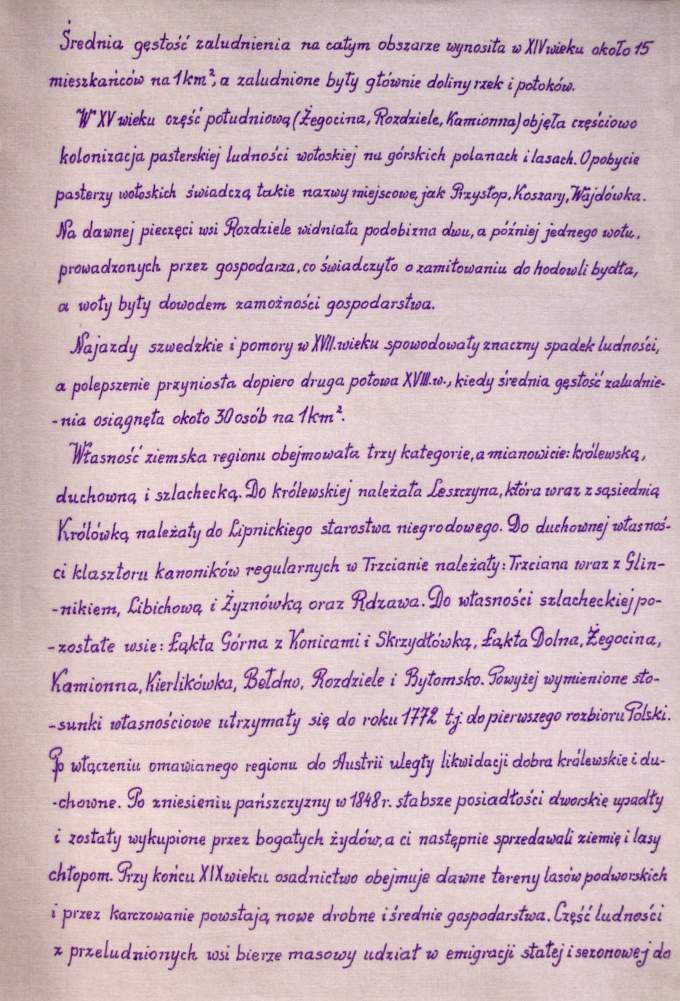 Średnia gęstość zaludnienia na całym obszarze wynosiła w XIV wieku około 15
mieszkańców na 1 km², a zaludnione były głównie doliny rzek i potoków.
W XV wieku część południową (Żegocina, Rozdziele, Kamionna) objęła częściowo
kolonizacja pasterskiej ludności wołoskiej na górskich polanach i lasach. O pobycie
pasterzy wołoskich świadczą takie nazwy miejscowe, jak Przysłop, Koszary, Wajdówka.
Na dawnej pieczęci wsi Rozdziele widniała podobizna dwu, a później jednego wołu,
prowadzonych przez gospodarza, co świadczyło o zamiłowaniu do hodowli bydła,
a woły były dowodem zamożności gospodarstwa.
Najazdy szwedzkie i pomory w XVII. wieku spowodowały znaczny spadek ludności,
a polepszenie przyniosła dopiero druga połowa XVIII. w., kiedy średnia gęstość zaludnie-
-nia osiągnęła około 30 osób na 1 km².
Własność ziemska regionu obejmowała trzy kategorie, a mianowicie: królewską,
duchowną i szlachecką. Do królewskiej należała Leszczyna, która wraz z sąsiednią
Królówką należały do Lipnickiego starostwa niegrodowego. Do duchownej własnoś-
ci klasztoru kanoników regularnych w Trzcianie należały: Trzciana wraz z Glin-
-nikiem, Libichową i Żyznówką oraz Rdzawa. Do własności szlacheckiej po-
-zostałe wsie: Łąkta Górna z Konicami i Skrzydłówką, Łąkta Dolna, Żegocina,
Kamionna, Kierlikówka, Bełdno, Rozdziele i Bytomsko. Powyżej wymienione sto-
-sunki własnościowe utrzymały się do roku 1772 t.j. do pierwszego rozbioru Polski.
Po włączeniu omawianego regionu do Austrii uległy likwidacji dobra królewskie i du-
-chowne. Po zniesieniu pańszczyzny w 1848 r. słabsze posiadłości dworskie upadły
i zostały wykupione przez bogatych żydów, a ci następnie sprzedawali ziemię i lasy
chłopom. Przy końcu XIX wieku osadnictwo obejmuje dawne tereny lasów podworskich
i przez karczowanie powstają nowe drobne i średnie gospodarstwa. Część ludności
z przeludnionych wsi bierze masowy udział w emigracji stałej i sezonowej do